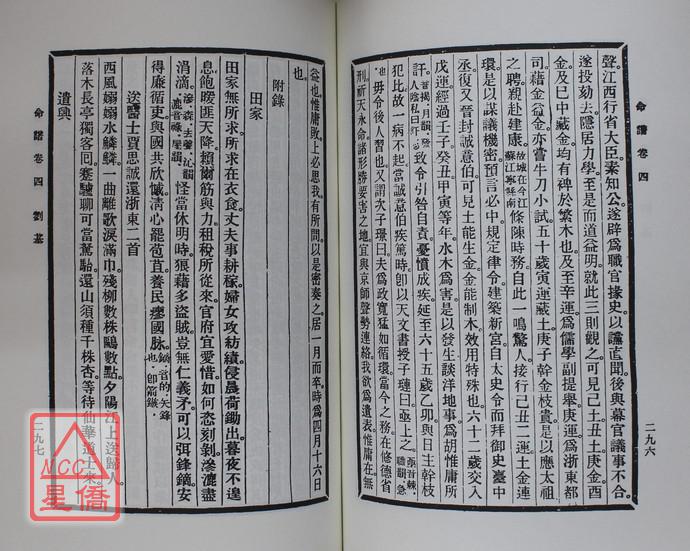 命譜 卷四
二九六
聲。江西行省大臣素知公。遂辟爲職官掾史。以讜直聞。後與幕官議事不合。
遂投劾去。隱居力學。至是而道益明。就此三則觀之。可見己土丑土庚金酉
金及巳中藏金。均有裨於繁木也。及至辛運。爲儒學副提舉。庚運。爲浙東都
司。藉金益金。亦嘗牛刀小試。五十歲寅運藏土。庚子幹金枝貴。是以應太祖
之聘。親赴建康。故城在今江蘇江寧縣南條陳時務。自此一鳴驚人。接行己丑二運。土金連
環。是以謀議機密。預言必中。規定律令。建築新宮。自太史令而拜御史臺中
丞。復又晉封誠意伯。可見土能生金。金能制木。效用特殊也。六十二歲交入
戊運。經過壬子癸丑甲寅等年。水木爲害。是以發生談洋地事。爲胡惟庸所
訐。音揭。月韻。發人陰私曰訐。致令引咎自責。憂憤成疾。延至六十五歲乙卯。與日主幹枝
犯比。故一病不起。當誠意伯疾篤時。卽以天文書授子璉曰。亟上之。亟音棘。職韻。急也。
毋令後人習也。又謂次子璟曰。夫爲政寬猛如循環。當今之務。在修德省
刑。祈天永命。諸形勝要害之地。宜與京師聲勢連絡。我欲爲遺表。惟庸在。無
益也。惟庸敗。上必思我。有所問。以是密奏之。居一月而卒。時爲四月十六日
也。
附錄
田家
田家無所求。所求在衣食。丈夫事耕稼。婦女攻紡績。侵晨荷鋤出。暮夜不遑
息。飽暖匪天降。賴爾筋與力。租稅所從來。官府宜愛惜。如何恣刻剝。滲漉盡
涓滴。滲。森去聲。沁韻。漉音祿。屋韻。怪當休明時。狠藉多盜賊。豈無仁義矛。可以弭鋒鏑。安
得廉循吏。與國共欣慼。清心罷苞苴。養民瘳國脉。鏑音的。矢鋒也。卽箭鏃。
送醫士賈思誠還浙東二首
西風嫋嫋水鱗鱗。一曲離歌淚滿巾。殘柳數株鷗數點。夕陽江上送歸人。
落木長亭獨客回。蹇驢聊可當駑駘。還山須種千株杏。等待仙華道士來。
遺興
命譜 卷四 劉基
二九七
NCC
星僑